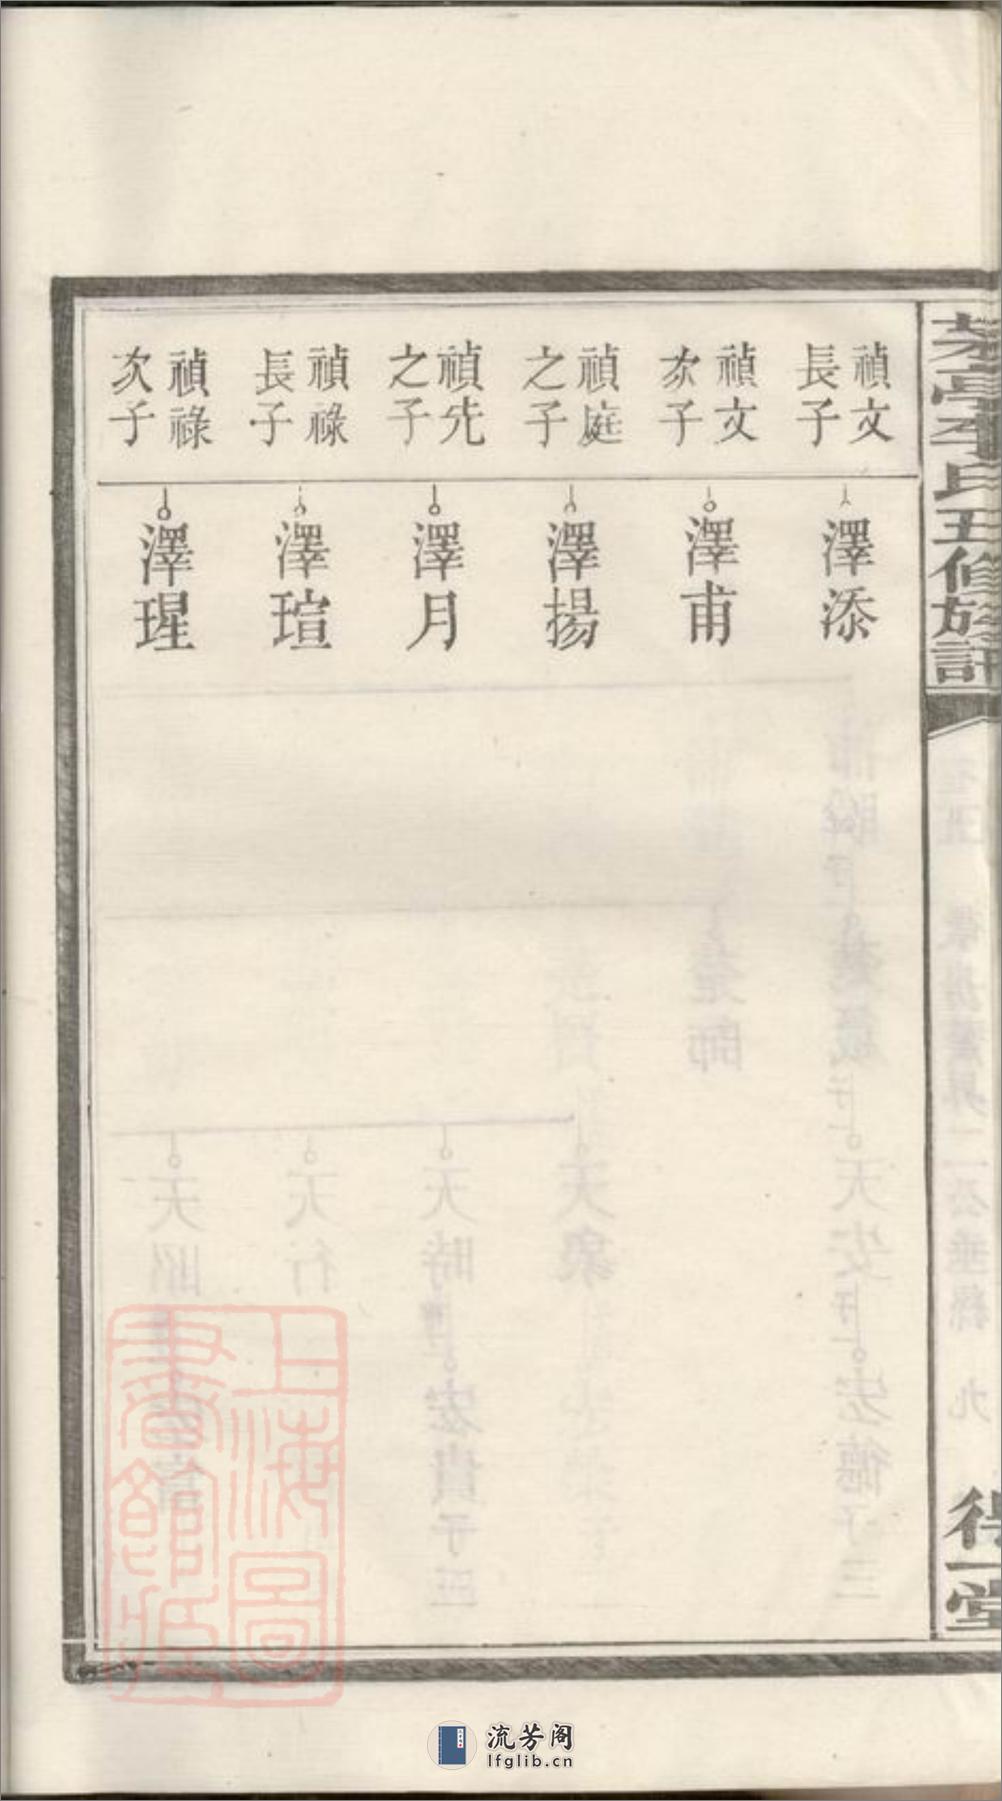 茶亭李氏五修族譜
得一堂
禎文
長子
澤添
禎文
次子
澤甫
禎庭
之子
澤揚
禎先
之子
澤月
禎祿
長子
澤瑄
禎祿
次子
澤瑆
上海圖
書館藏
流芳阁
lfglib.cn